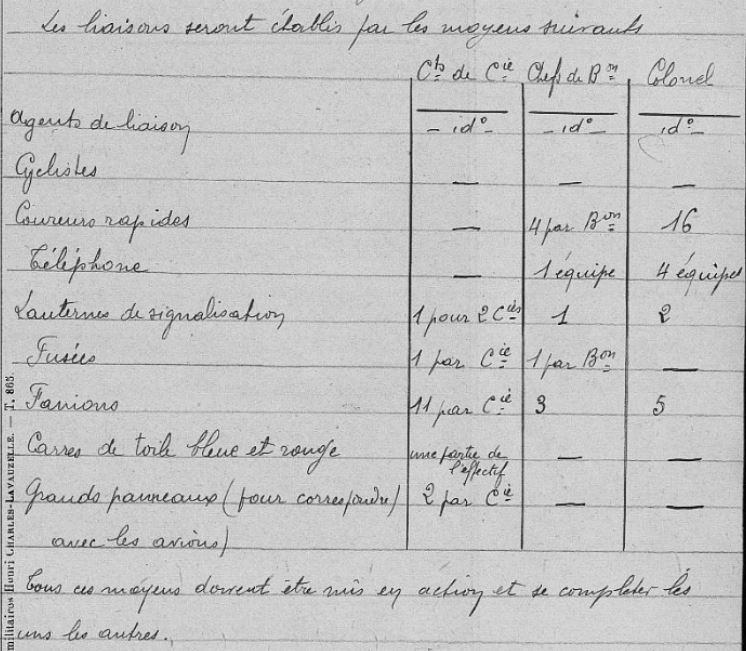 Les liaisons seront établis par les moyens suivants
Cts de Cie Chefs de Bon Colonel
Agents de liaison – id° – – id° – id° –
Cyclistes — — —
Coureurs rapides — 4 par Bon 16
Téléphone — 1 équipe 4 équipes
Lanternes de signalisation 1 pour 2 Cies 1 2
Fusées 1 par Cie 1 par Bon —
Fanions 11 par Cie 3 5
Carrés de toile bleue et rouge une partie de l'effectif — —
Grands panneaux (pour correspondre) 2 par Cie — —
avec les avions)
Tous ces moyens doivent être mis en action et se compléter les
uns les autres.
militaires Henri CHARLES-LAVAUZELLE. — T. 865.